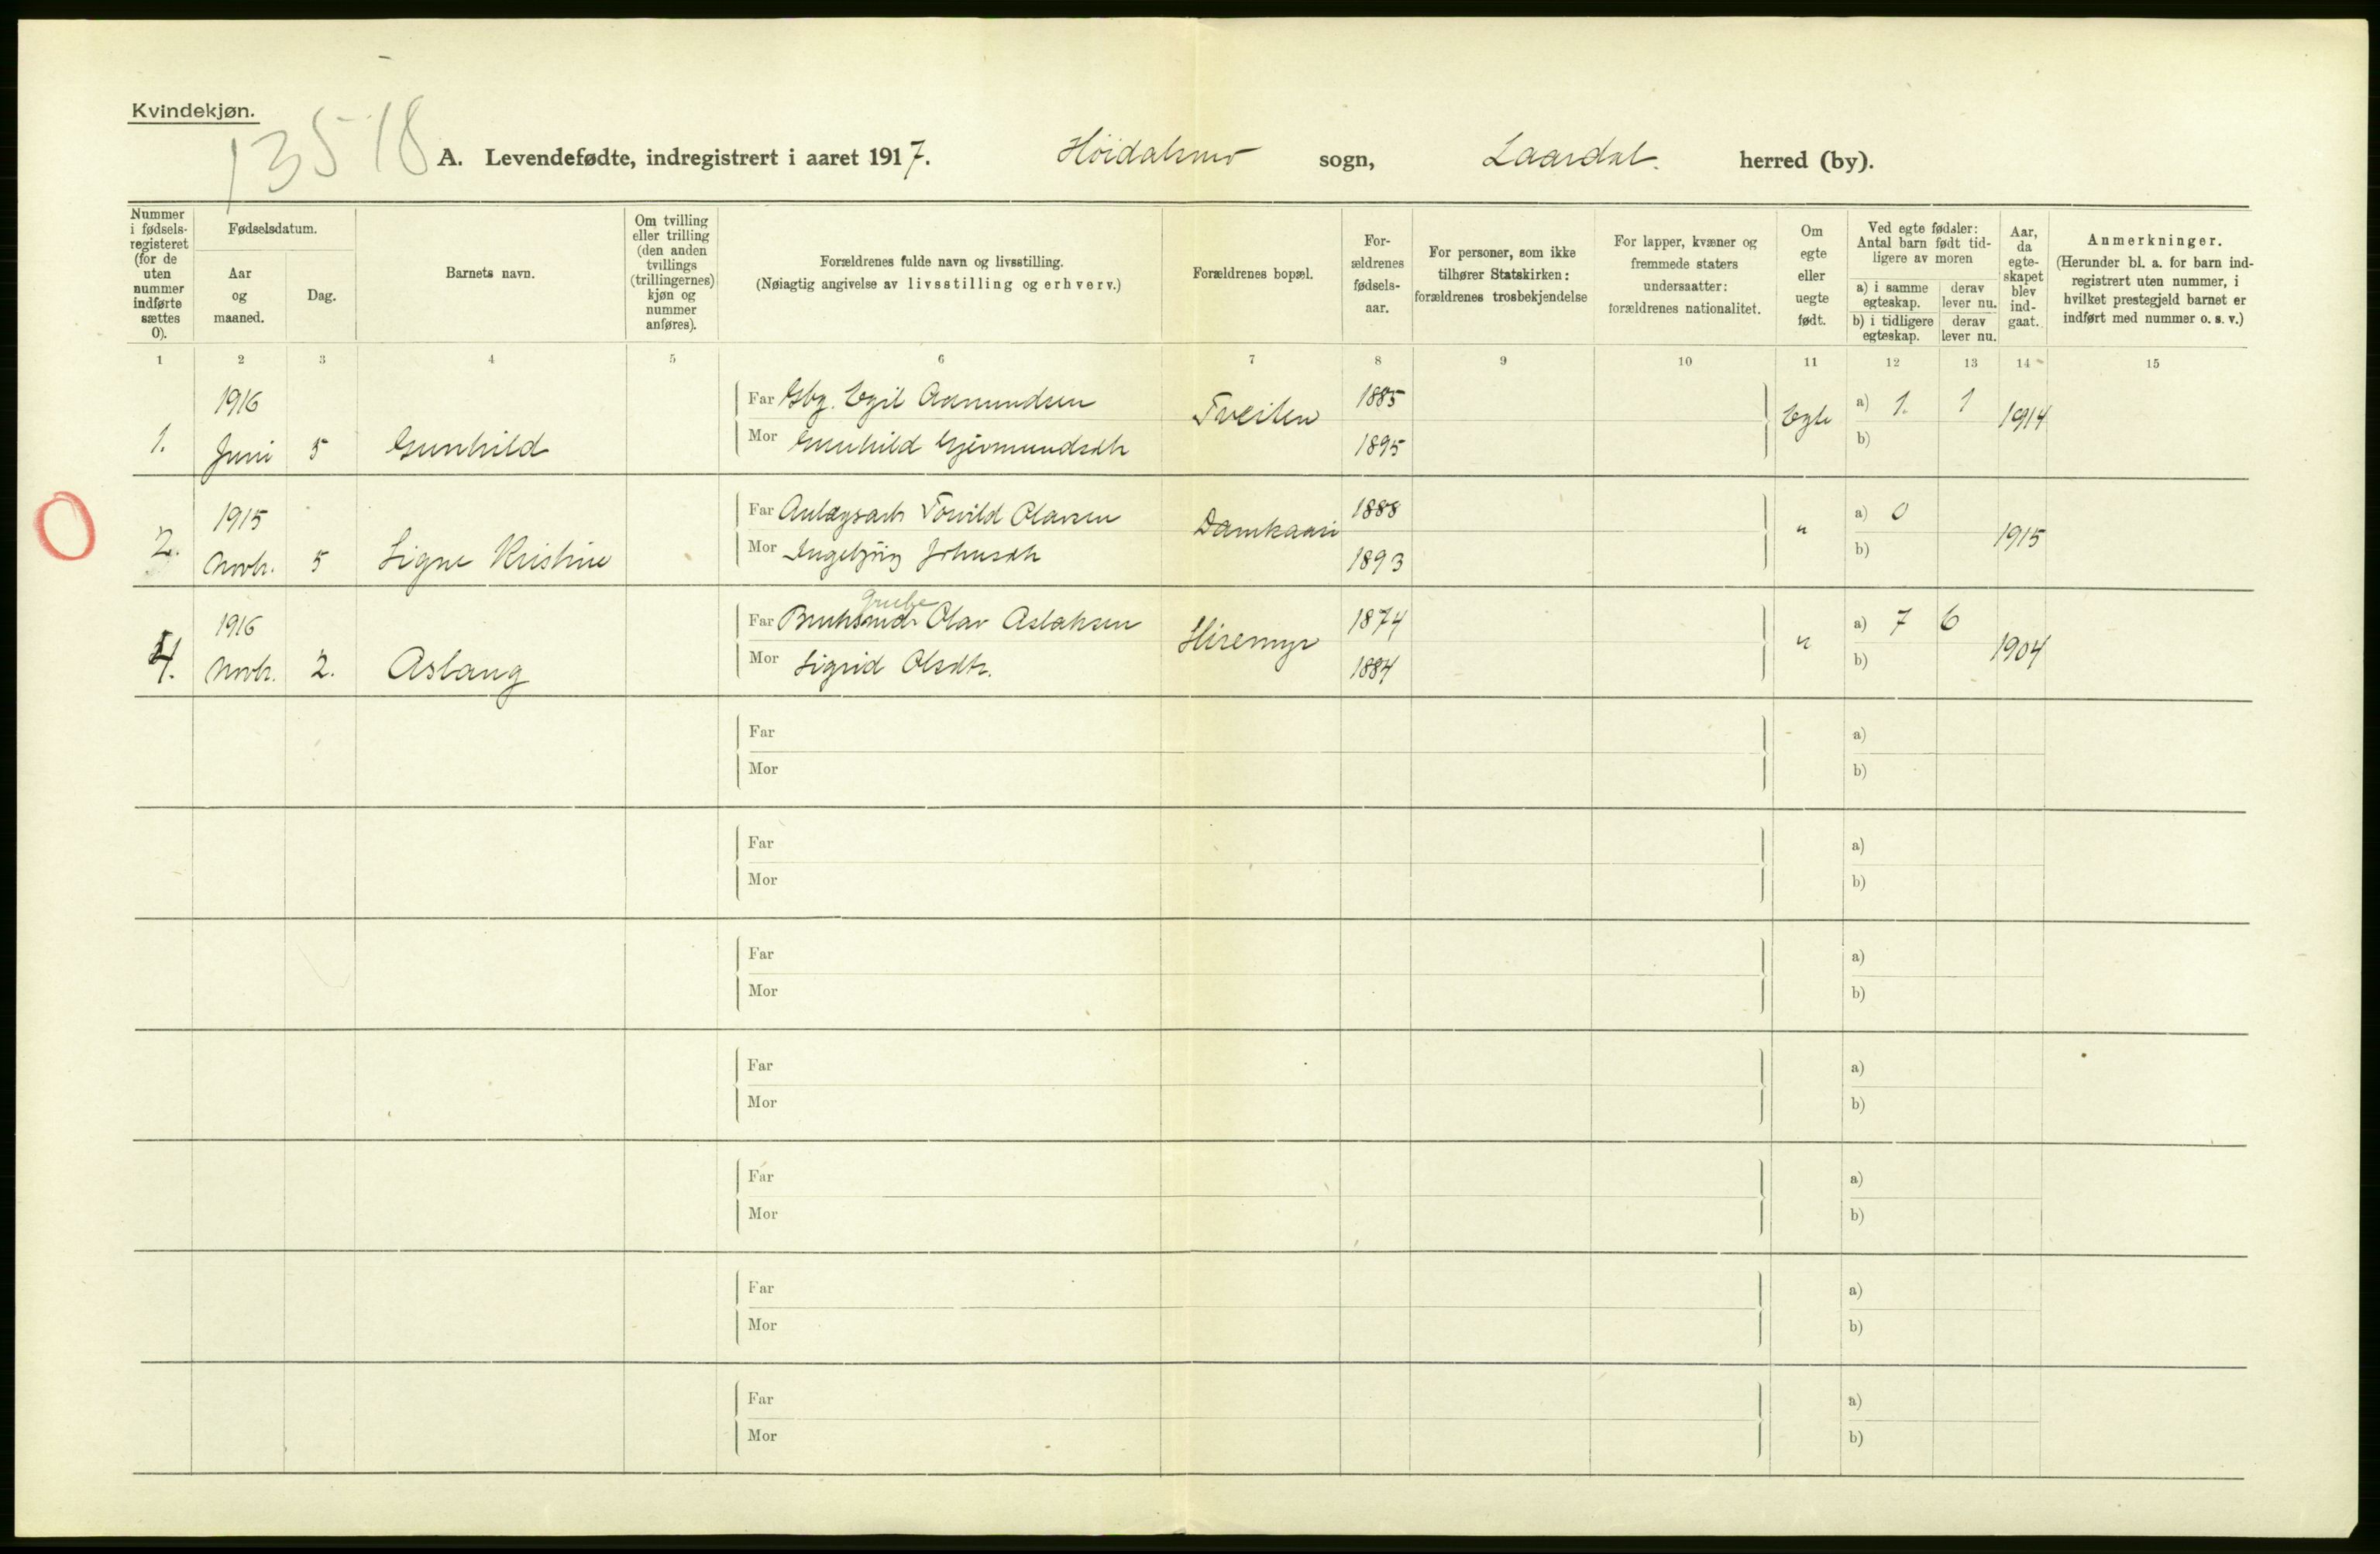 Kvindekjøn.
13518
A. Levendefødte, indregistrert i aaret 1917. Høidalsmo sogn, Laardal. herred (by).
Nummer i fødsels-registeret (for de uten nummer indførte sættes 0).
Fødselsdatum.
Aar og maaned.
Dag.
Barnets navn.
Om tvilling eller trilling (den anden tvillings (trillingernes) kjøn og nummer anføres).
Forældrenes fulde navn og livsstilling.
(Nøiagtig angivelse av livsstilling og erhverv.)
Forældrenes bopæl.
For-ældrenes fødsels-aar.
For personer, som ikke tilhører Statskirken: forældrenes trosbekjendelse
For lapper, kvæner og fremmede staters undersaatter: forældrenes nationalitet.
Om egte eller uegte født.
Ved egte fødsler: Antal barn født tid-ligere av moren
a) i samme egteskap.
derav lever nu.
b) i tidligere egteskap.
derav lever nu.
Aar, da egte-skapet blev ind-gaat.
Anmerkninger.
(Herunder bl. a. for barn ind-registrert uten nummer, i hvilket prestegjeld barnet er indført med nummer o. s. v.)
1 2 3 4 5 6 7 8 9 10 11 12 13 14 15
1916 Far Gbr. Egil Aamundsen Tveiten 1885 Egte a) 1. 1 1914
1. Juni 5 Gunhild Mor Gunhild Gjermundsdtr 1895 b)
0
1915 Far Anlægsarb. Torvild Olavsen 1888 " a) 0 1915
2. Novbr. 5 Signe Kristine Mor Ingebjørg Johnsdtr 1893 b)
grube
1916 Far Olav Aslaksen 1874 " a) 7 6 1904
4. Novbr. 2. Aslaug Mor Sigrid Olsdtr. 1884 b)
Far a)
Mor b)
Far a)
Mor b)
Far a)
Mor b)
Far a)
Mor b)
Far a)
Mor b)
Far a)
Mor b)
Far a)
Mor b)